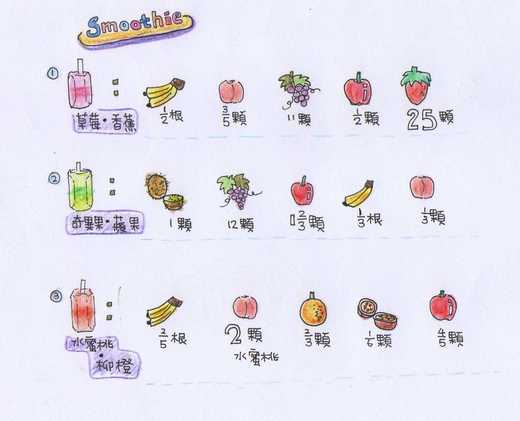 Smoothie
① :
草莓・香蕉 1/2根 3/5顆 11顆 1/2顆 25顆
② :
奇異果・蘋果 1顆 12顆 1 2/3顆 1/3根 1/3顆
③ :
2/5根 2顆 2/3顆 1/6顆 4/5顆
水蜜桃 水蜜桃
・
柳橙